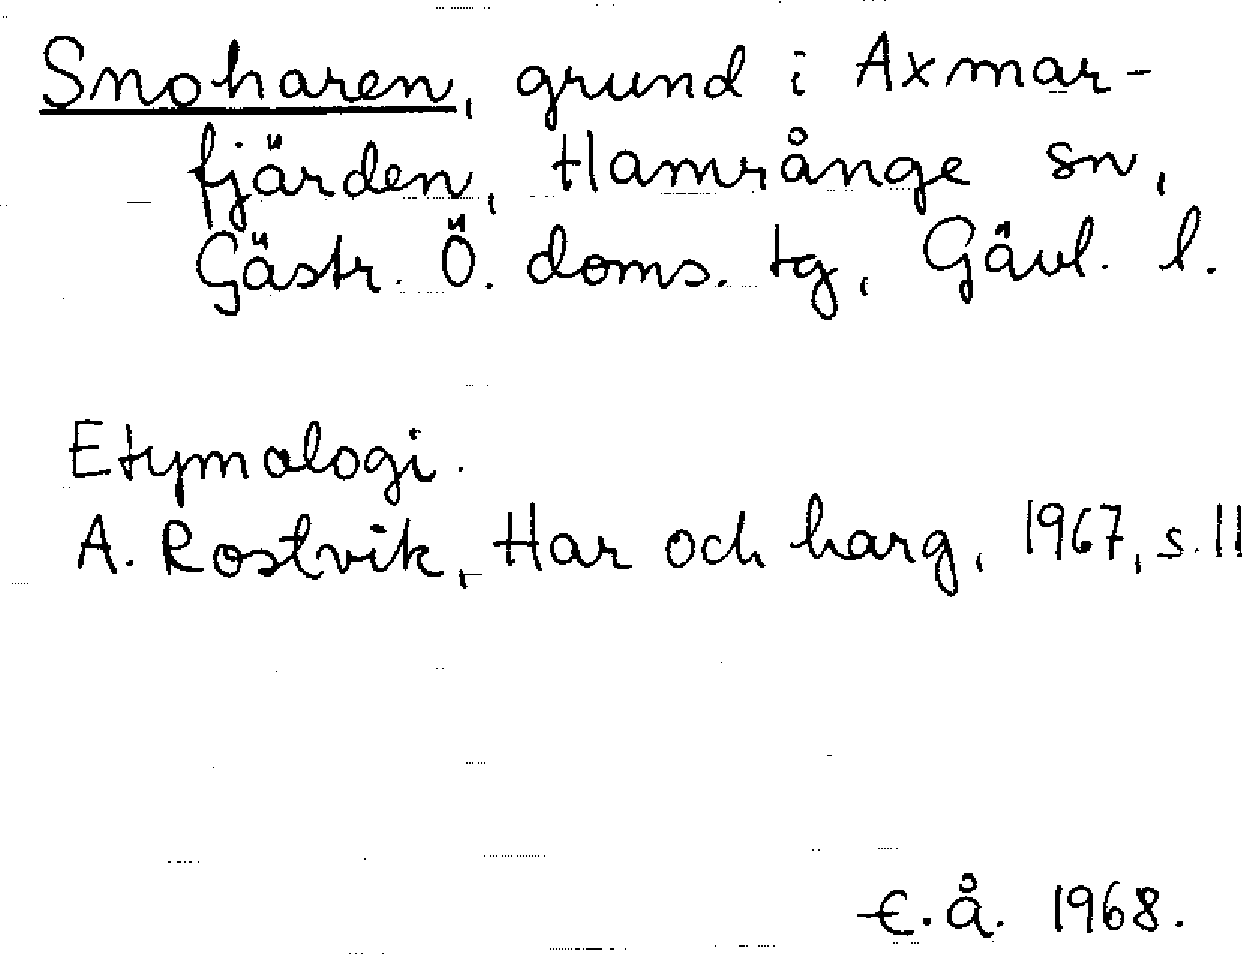 Snoharen, grund i Axmar-
fjärden, Hamrånge sn,
Gästr. Ö. doms. tg, Gävl. l.
Etymologi.
A. Rostvik, Har och harg, 1967, s. 11
E.Å. 1968.